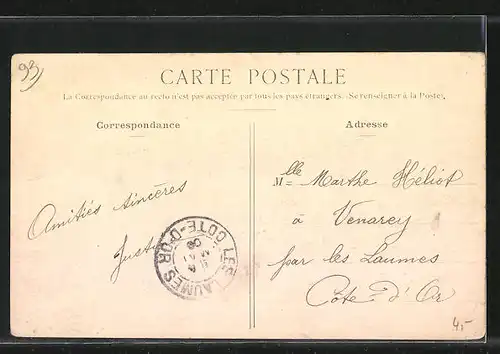 93
CARTE POSTALE
La Correspondance au recto n'est pas acceptée par tous les pays étrangers. -Se renseigner à la Poste.
Correspondance
Amitiés sincères
Adresse
Mlle Marthe Héliot
à Venarey
par les Laumes
Côte-d'Or
LES LAUMES COTE-D'OR
4,-